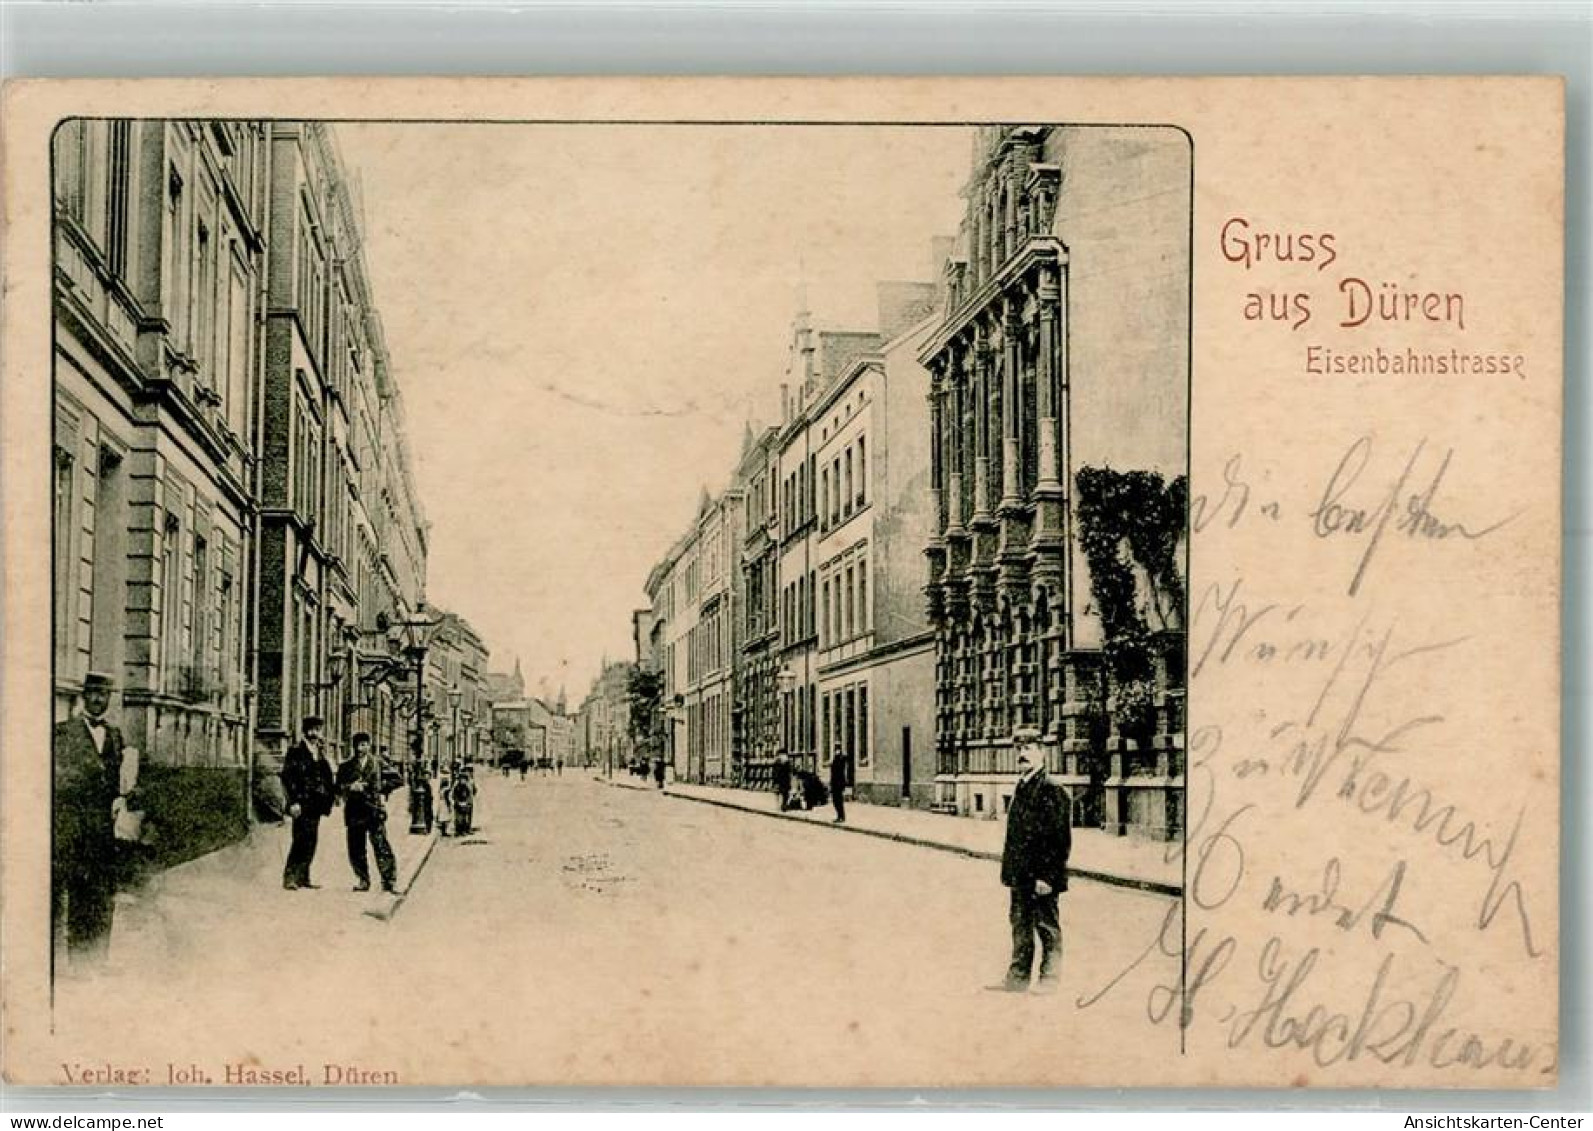 Gruss
aus Düren
Eisenbahnstrasse
Die besten
Wünsche
sendet
H. Heckhaus
Verlag: Joh. Hassel, Düren
oldthing.de
Ansichtskarten-Center